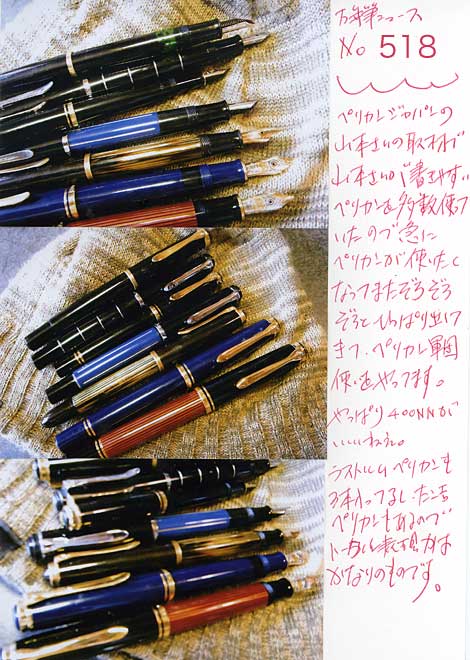 万年筆ニュース
No 518
ペリカンジャパンの
山本さんの取材で
山本さんが書きやすい
ペリカンを多数使って
いたので急に
ペリカンが使いたく
なってまたぞろぞろ
ぞろとひっぱり出して
きて、ペリカン軍団
使いをやってます。
やっぱり400NNが
いいねえ。
ペリカンも
3本入ってるし
ペリカンもあるので
トータル表現力は
かなりのものです。